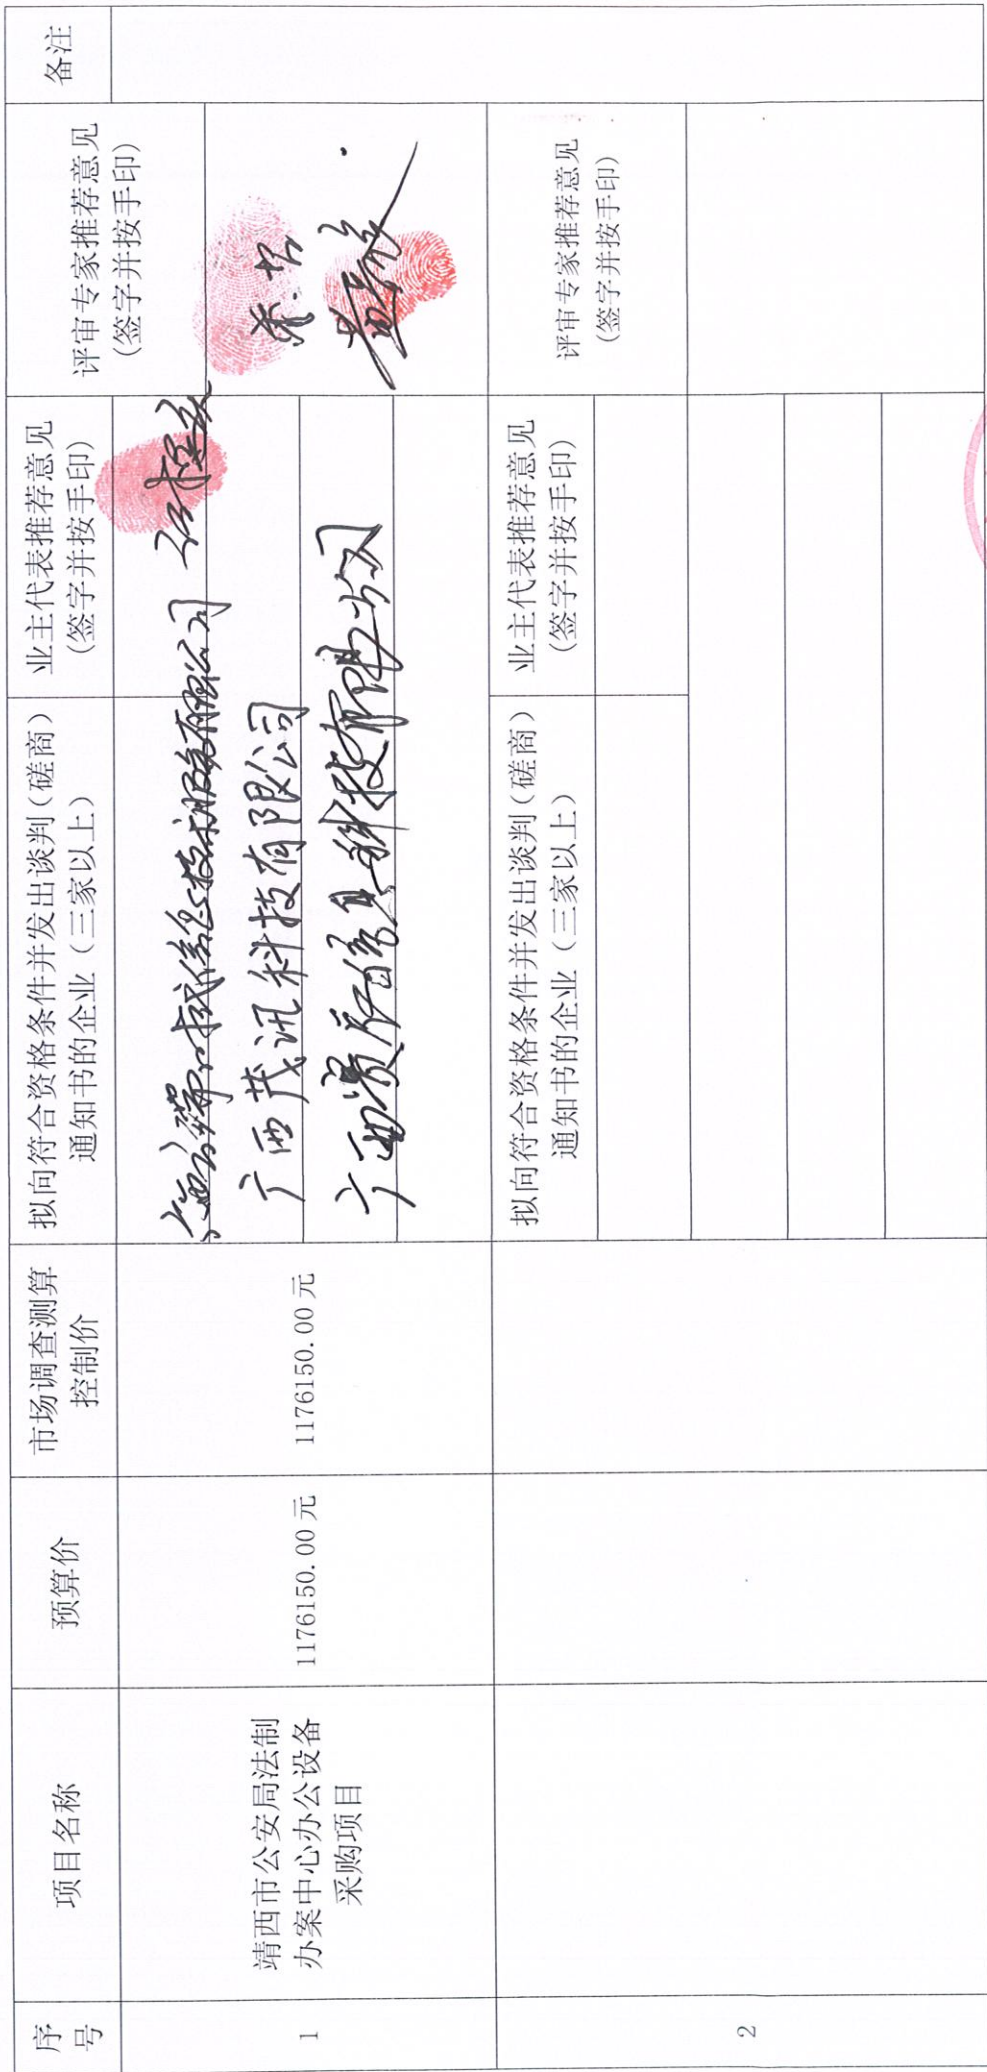 序
号
项目名称
预算价
市场调查测算
控制价
拟向符合资格条件并发出谈判（磋商）
通知书的企业（三家以上）
业主代表推荐意见
(签字并按手印)
评审专家推荐意见
(签字并按手印)
备注
1
靖西市公安局法制
办案中心办公设备
采购项目
1176150.00 元
1176150.00 元
信息技术服务有限公司
广西茂讯科技有限公司
信息科技有限公司
2
拟向符合资格条件并发出谈判（磋商）
通知书的企业（三家以上）
业主代表推荐意见
(签字并按手印)
评审专家推荐意见
(签字并按手印)